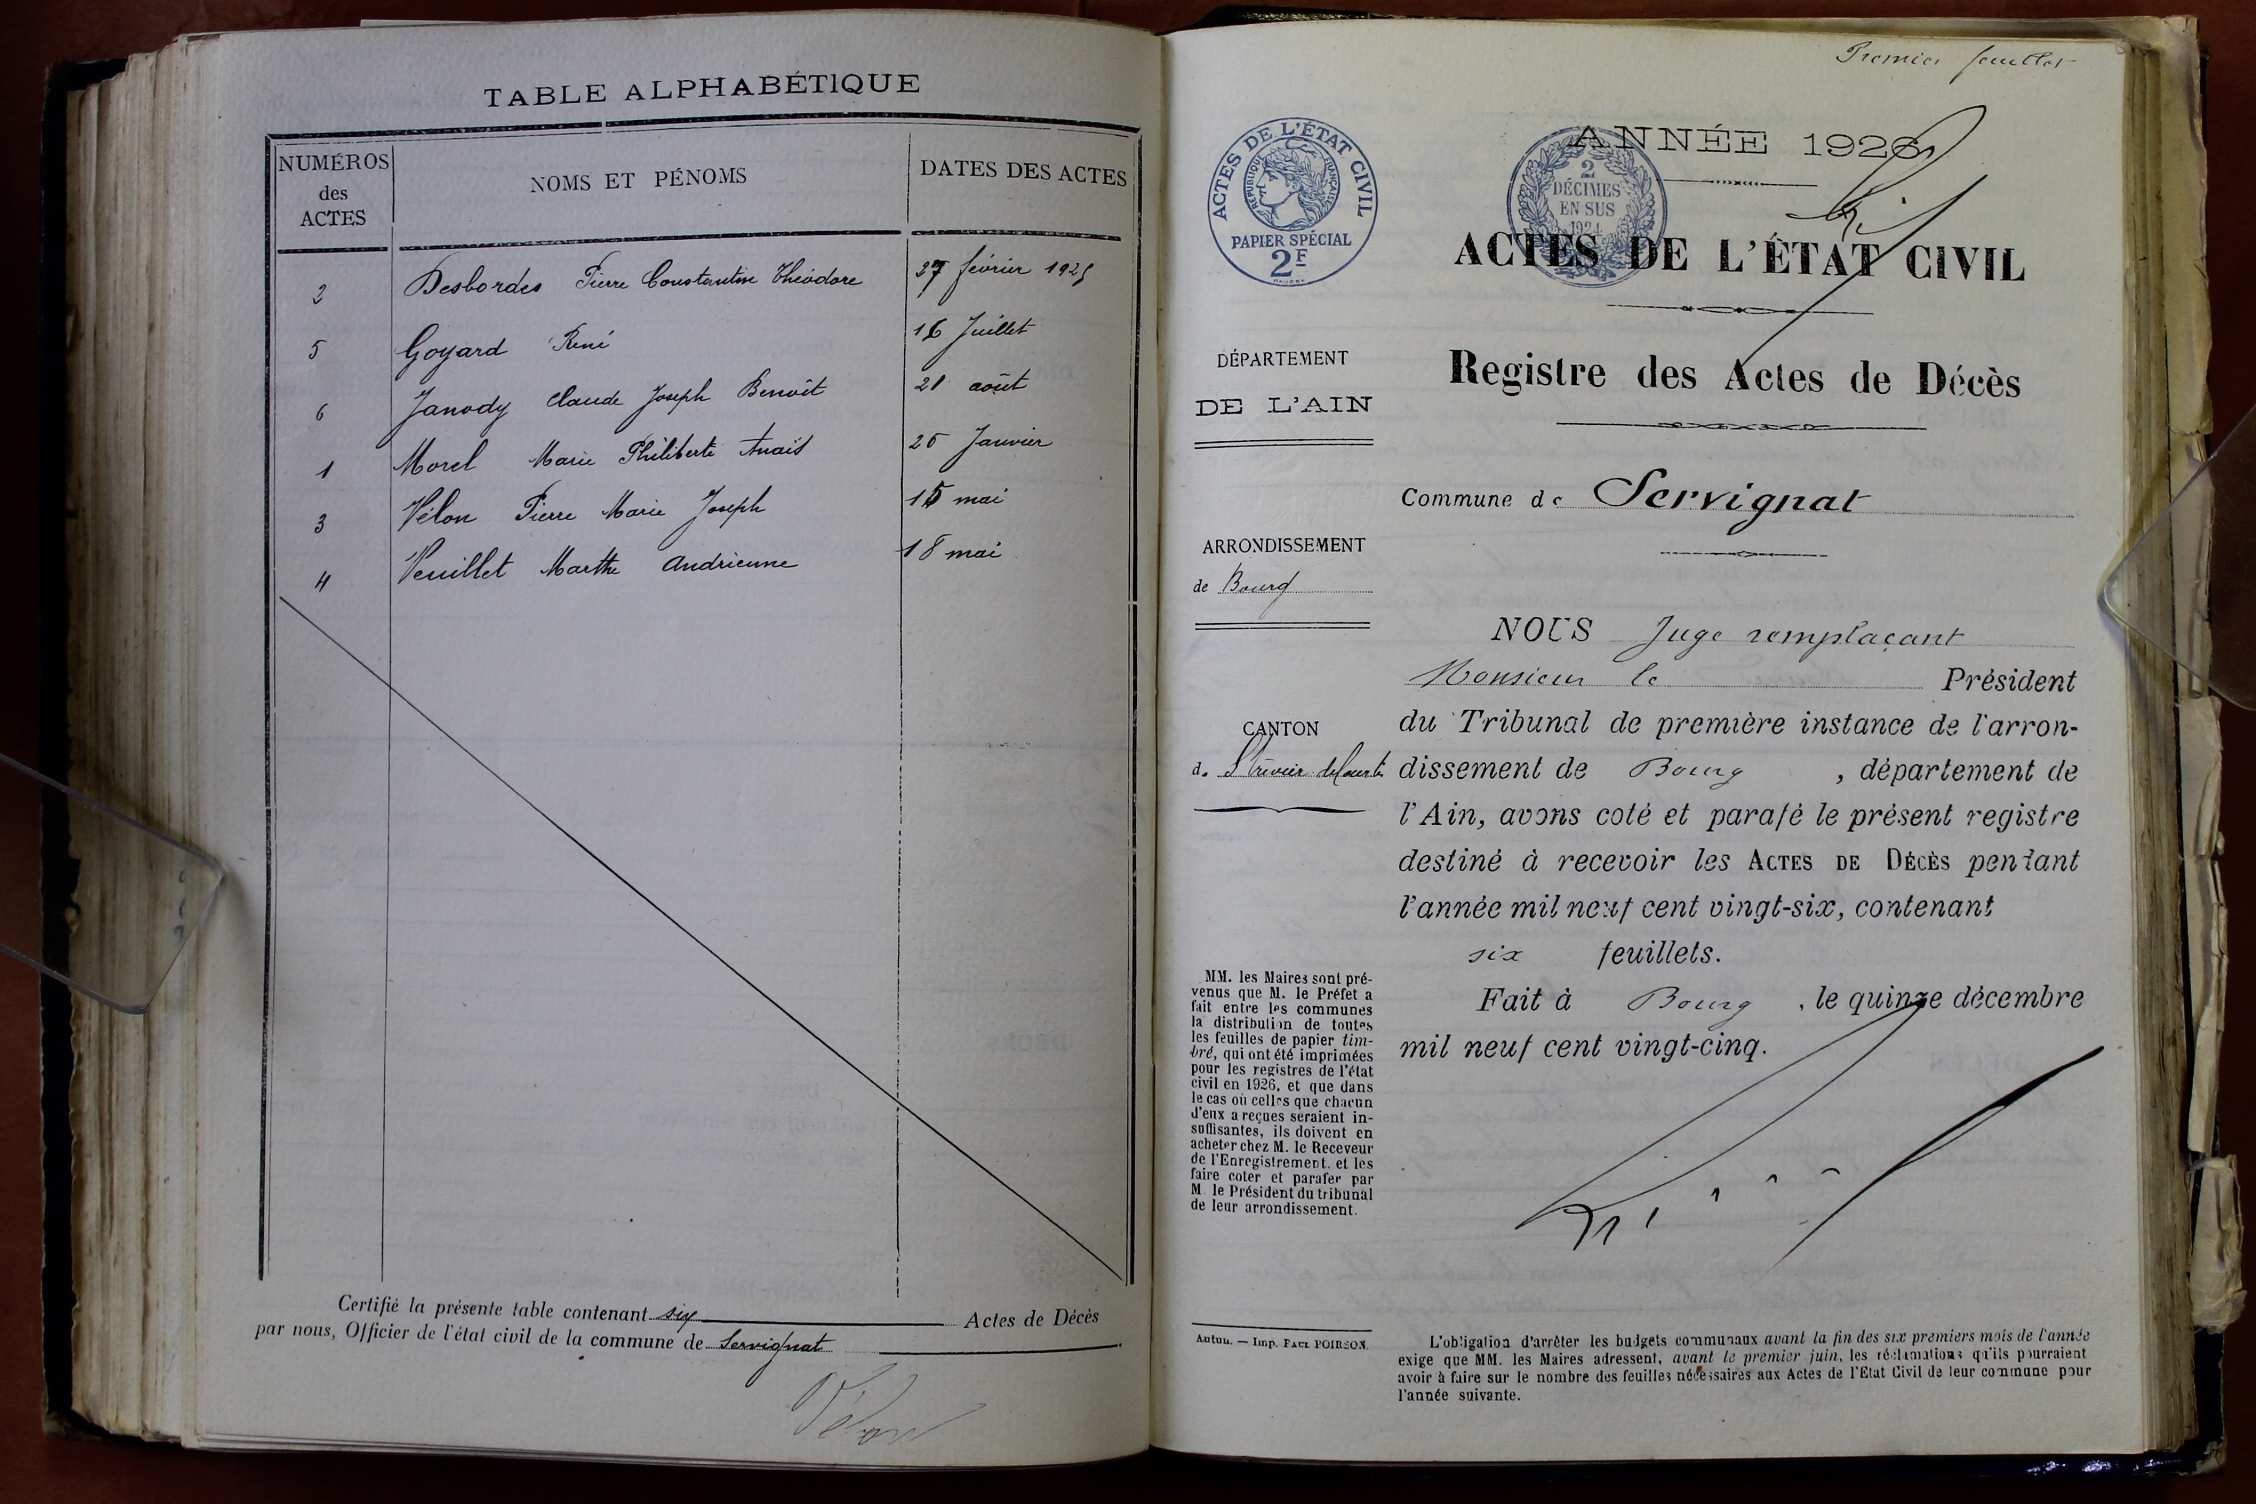 TABLE ALPHABÉTIQUE
NUMÉROS
des
ACTES
NOMS ET PÉNOMS
DATES DES ACTES
2 Desbordes Pierre Constantin Théodore 27 février 1925
5 Goyard René 16 Juillet
6 Janody Claude Joseph Benoît 21 août
1 Morel Marie Philiberte Anaïs 25 Janvier
3 Vélon Pierre Marie Joseph 15 mai
4 Veuillet Marthe Andrienne 18 mai
Certifié la présente table contenant six Actes de Décès
par nous, Officier de l'état civil de la commune de Servignat
Vélon
Premier feuillet
ACTES DE L'ÉTAT CIVIL
RÉPUBLIQUE FRANÇAISE
PAPIER SPÉCIAL
2F
2
DÉCIMES
EN SUS
1924
ANNÉE 1926
ACTES DE L'ÉTAT CIVIL
Registre des Actes de Décès
Commune de Servignat
DÉPARTEMENT
DE L'AIN
ARRONDISSEMENT
de Bourg
CANTON
de St Trivier de Courtes
MM. les Maires sont pré-
venus que M. le Préfet a
fait entre les communes
la distribution de toutes
les feuilles de papier tim-
bré, qui ont été imprimées
pour les registres de l'état
civil en 1926, et que dans
le cas où celles que chacun
d'eux a reçues seraient in-
suffisantes, ils doivent en
acheter chez M. le Receveur
de l'Enregistrement. et les
faire coter et parafer par
M. le Président du tribunal
de leur arrondissement.
Autun. — Imp. PAUL POIRSON.
NOUS Juge remplaçant
Monsieur le Président
du Tribunal de première instance de l'arron-
dissement de Bourg, département de
l'Ain, avons coté et parafé le présent registre
destiné à recevoir les ACTES DE DÉCÈS pendant
l'année mil neuf cent vingt-six, contenant
six feuillets.
Fait à Bourg, le quinze décembre
mil neuf cent vingt-cinq.
L'obligation d'arrêter les budgets communaux avant la fin des six premiers mois de l'année
exige que MM. les Maires adressent, avant le premier juin, les réclamations qu'ils pourraient
avoir à faire sur le nombre des feuilles nécessaires aux Actes de l'Etat Civil de leur commune pour
l'année suivante.